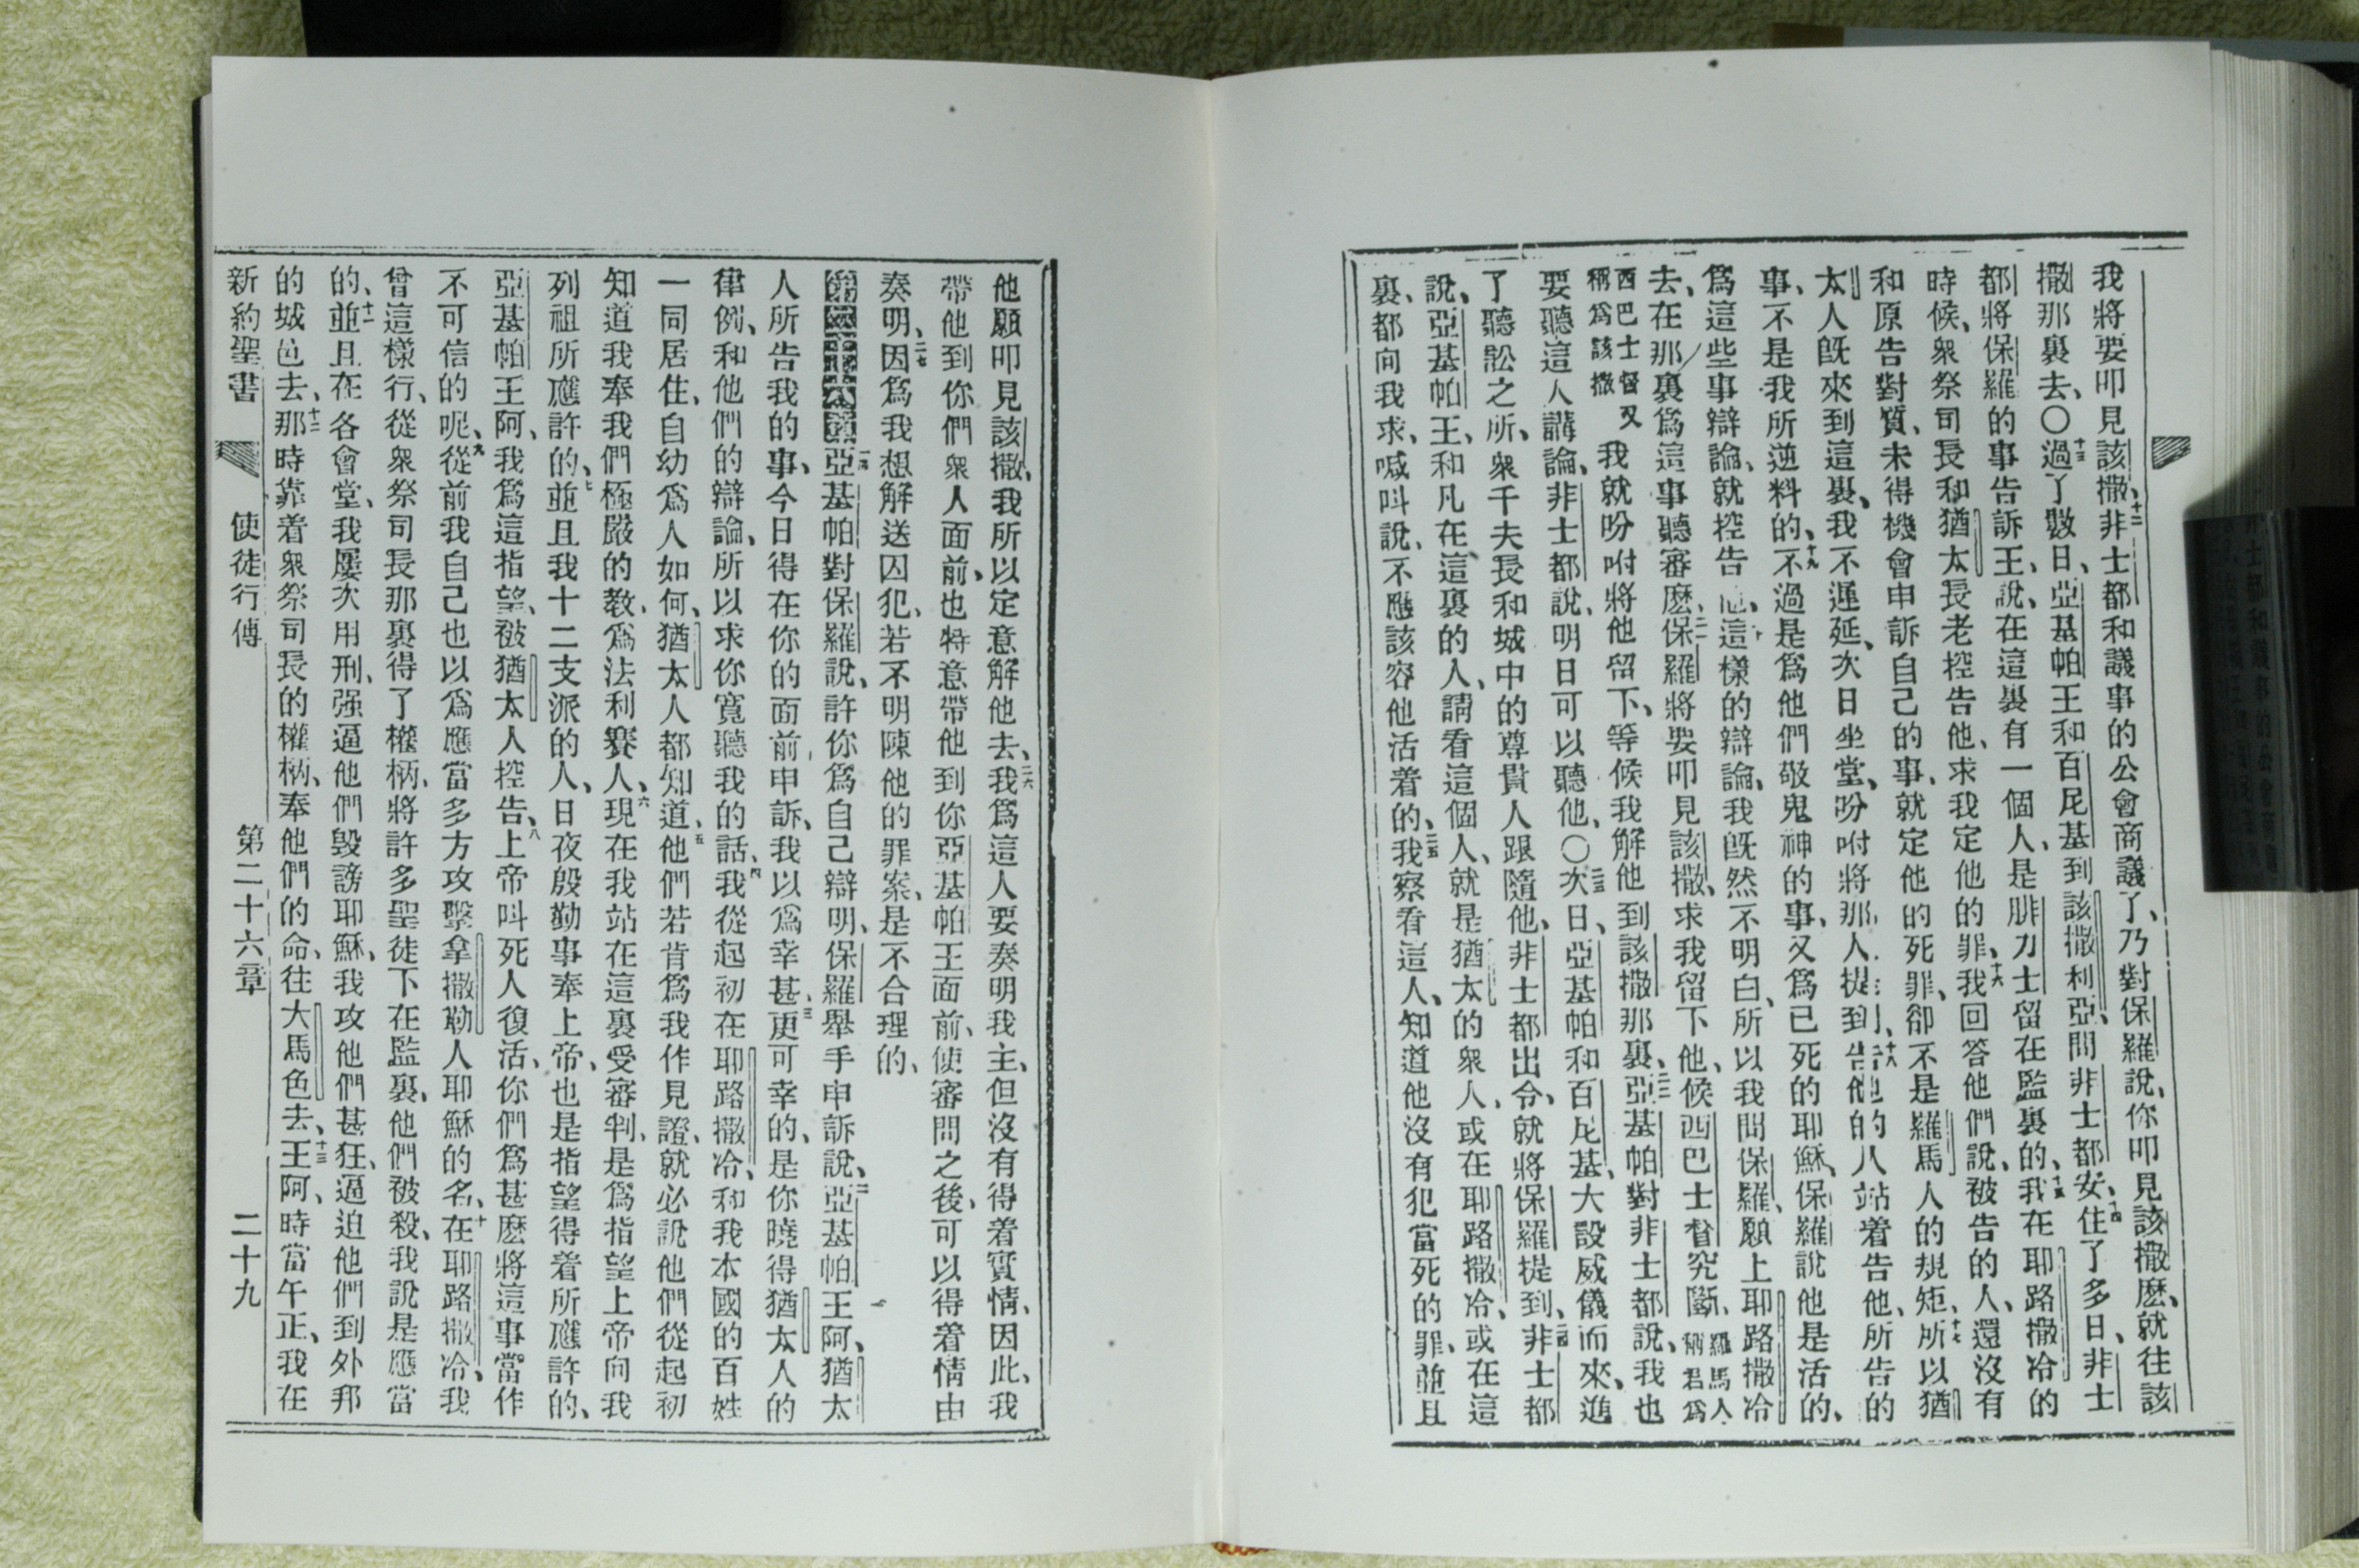 我將要叩見該撒、十二非士都和議事的公會商議了、乃對保羅說、你叩見該撒麽、就往該
撒那裏去、〇十三過了數日、亞基帕王和百尼基到該撒利亞、問非士都安、十四住了多日、非士
都將保羅的事告訴王、說、在這裏有一個人、是腓力士留在監裏的、十五我在耶路撒冷的
時候、衆祭司長和猶太長老控告他、求我定他的罪、十六我回答他們說、被告的人、還沒有
和原告對質、未得機會申訴自己的事、就定他的死罪、卻不是羅馬人的規矩、十七所以猶
太人旣來到這裏、我不遲延、次日坐堂、吩咐將那人提到、十八告他的人站着告他、所告的
事、不是我所逆料的、十九不過是爲他們敬鬼神的事、又爲已死的耶穌、保羅說他是活的、
爲這些事辯論、就控告他、二十這樣的辯論、我旣然不明白、所以我問保羅、願上耶路撒冷
去、在那裏爲這事聽審麽、二一保羅將要叩見該撒、求我留下他、候西巴士督究斷、羅馬人稱君爲
西巴士督又稱爲該撒我就吩咐將他留下、等候我解他到該撒那裏、二二亞基帕對非士都說、我也
要聽這人講論、非士都說、明日可以聽他、〇二三次日、亞基帕和百尼基、大設威儀而來、進
了聽訟之所、衆千夫長和城中的尊貴人跟隨他、非士都出令、就將保羅提到、二四非士都
說、亞基帕王、和凡在這裏的人、請看這個人、就是猶太的衆人、或在耶路撒冷、或在這
裏、都向我求、喊叫說、不應該容他活着的、二五我察看這人、知道他沒有犯當死的罪、並且
他願叩見該撒、我所以定意解他去、二六我爲這人要奏明我主、但沒有得着實情、因此、我
帶他到你們衆人面前、也特意帶他到你亞基帕王面前、使審問之後、可以得着情由
奏明、二七因爲我想解送囚犯、若不明陳他的罪案、是不合理的、
第二十六章一亞基帕對保羅說、許你爲自己辯明、保羅舉手申訴說、二亞基帕王阿、猶太
人所告我的事、今日得在你的面前申訴、我以爲幸甚、三更可幸的、是你曉得猶太人的
律例、和他們的辯論、所以求你寬聽我的話、四我從起初在耶路撒冷、和我本國的百姓
一同居住、自幼爲人如何、猶太人都知道、五他們若肯爲我作見證、就必說他們從起初
知道我奉我們極嚴的教、爲法利賽人、六現在我站在這裏受審判、是爲指望上帝向我
列祖所應許的、七並且我十二支派的人、日夜殷勤事奉上帝、也是指望得着所應許的、
亞基帕王阿、我爲這指望、被猶太人控告、八上帝叫死人復活、你們爲甚麽將這事當作
不可信的呢、九從前我自己也以爲應當多方攻擊拿撒勒人耶穌的名、十在耶路撒冷、我
曾這樣行、從衆祭司長那裏得了權柄、將許多聖徒下在監裏、他們被殺、我說是應當
的、十一並且在各會堂、我屢次用刑、强逼他們毀謗耶穌、我攻他們甚狂、逼迫他們到外邦
的城邑去、十二那時靠着衆祭司長的權柄、奉他們的命、往大馬色去、十三王阿、時當午正、我在
新約聖書 使徒行傳 第二十六章 二十九